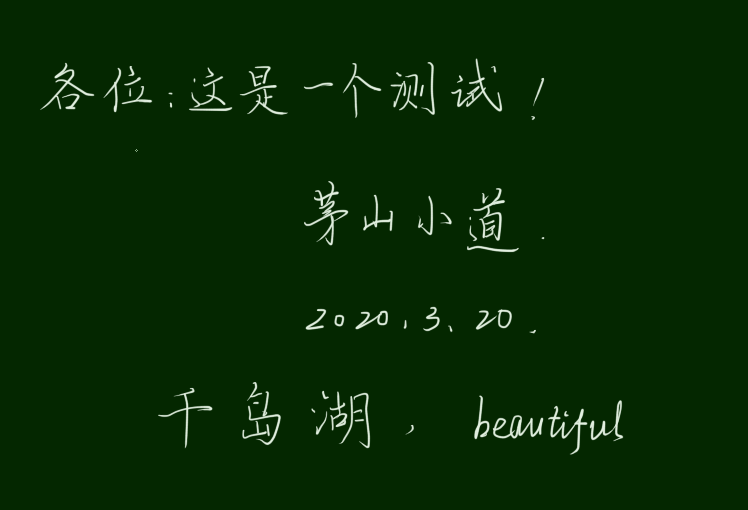 各位:这是一个测试!
茅山小道.
2020.3.20.
千岛湖, beautiful